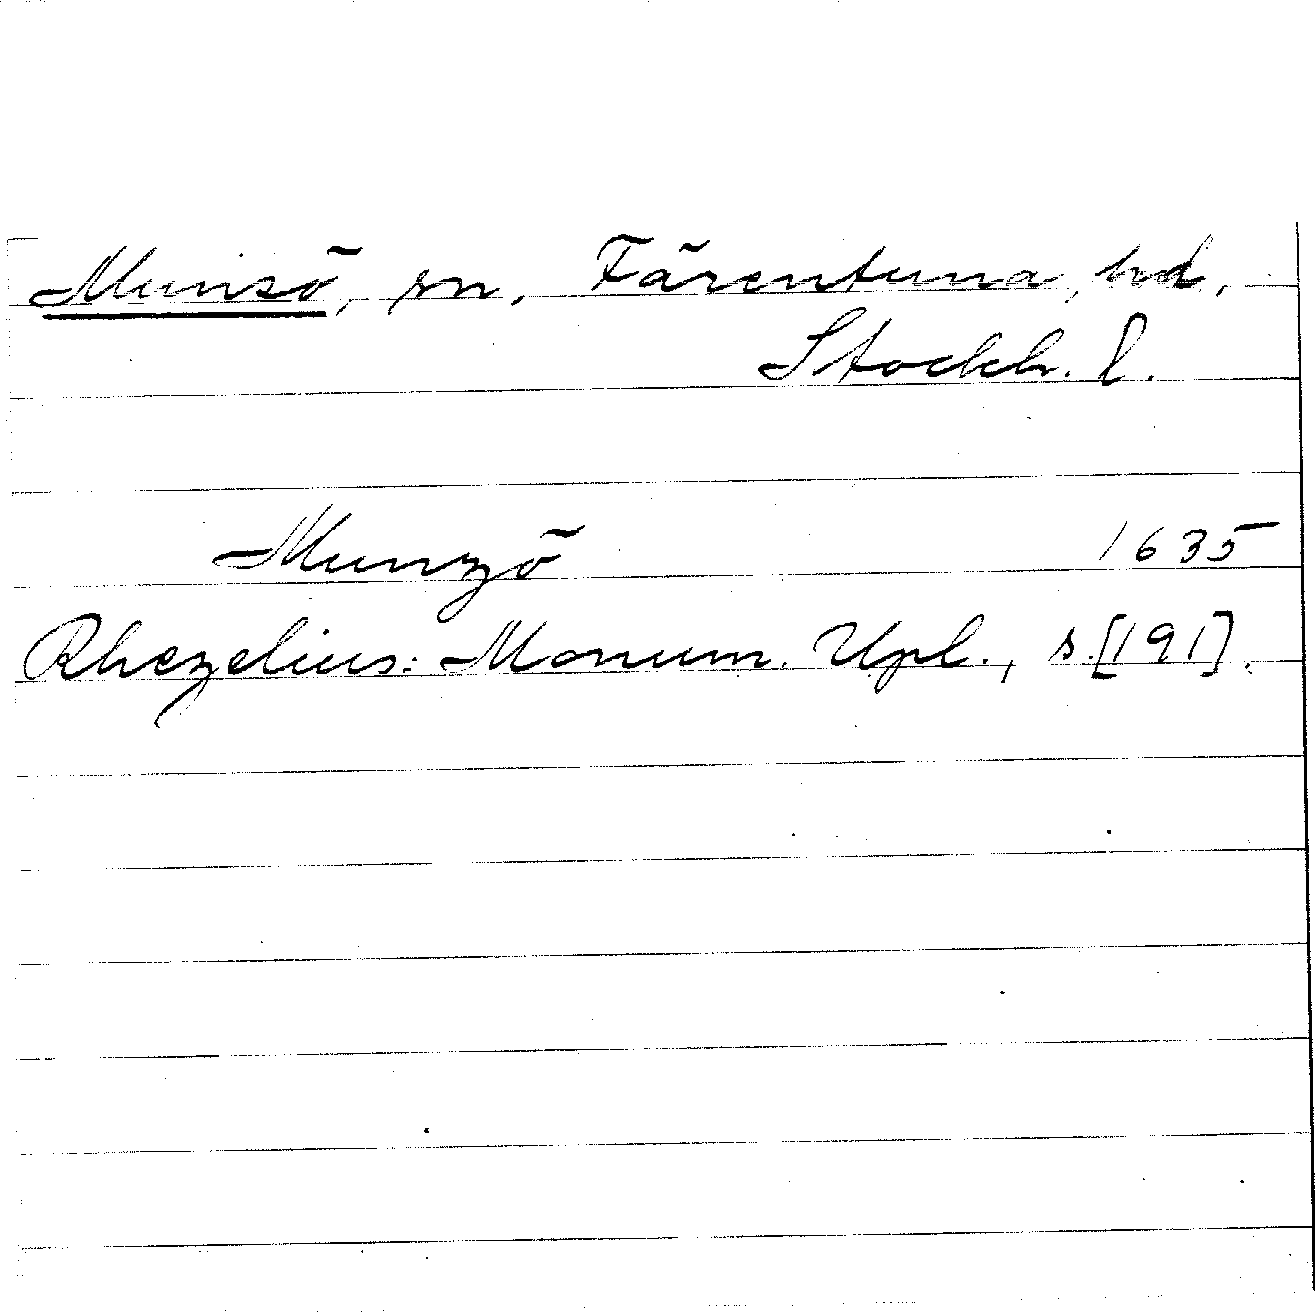 Munsö, sn, Färentuna hd,
Stockh. l.
Munzö 1635
Rhezelius: Monum. Upl., s.[191].